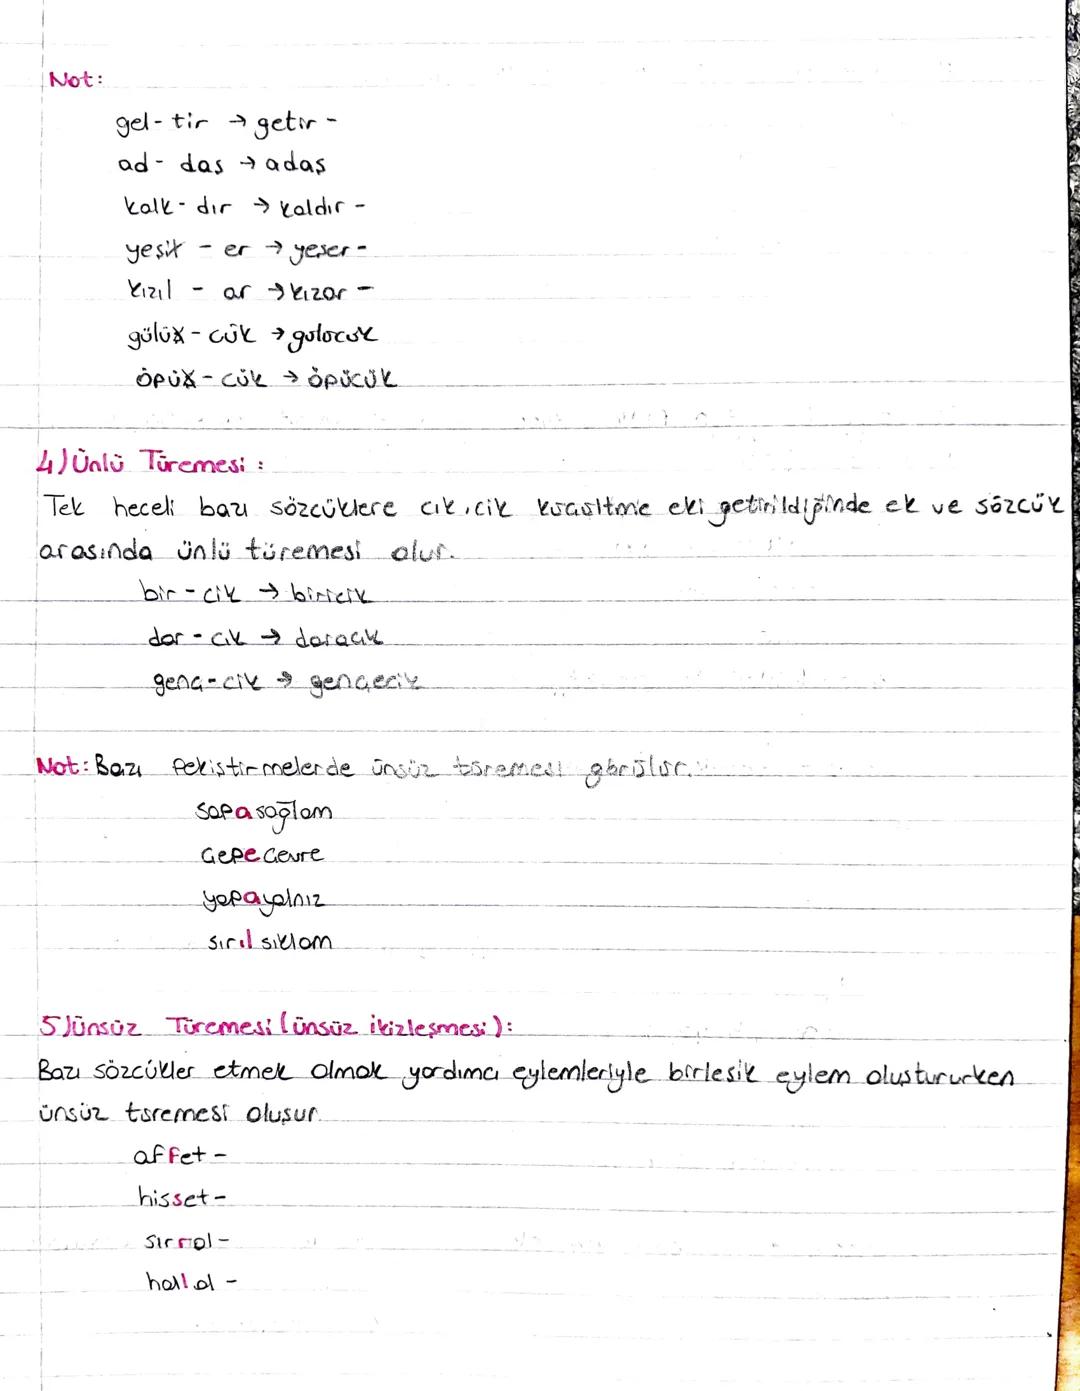 Not:
gel-tir → getır-
ad- das → adaş
kalk-dır → kaldır-
yeşil - er → yeşer-
kızıl - ar → kızar-
gülük-cük → gülücük
öpük-cük → öpücük
4) Ünlü Türemesi:
Tek heceli bazı sözcüklere cık, cik küçültme eki getirildiğinde ek ve sözcük
arasında ünlü türemesi olur.
bir-cik → biricik
dar-cık → daracık
genç-cik → gençecik
Not: Bazı Pekiştirmelerde ünsüz türemesi görülür.
sapasağlam
çepeçevre
yapayalnız
sırılsıklam
5) Ünsüz Türemesi (ünsüz ikizleşmesi):
Bazı sözcükler etmek olmak yardımcı eylemleriyle birleşik eylem oluştururken
ünsüz türemesi oluşur.
affet-
hisset-
sırrol-
hallol-